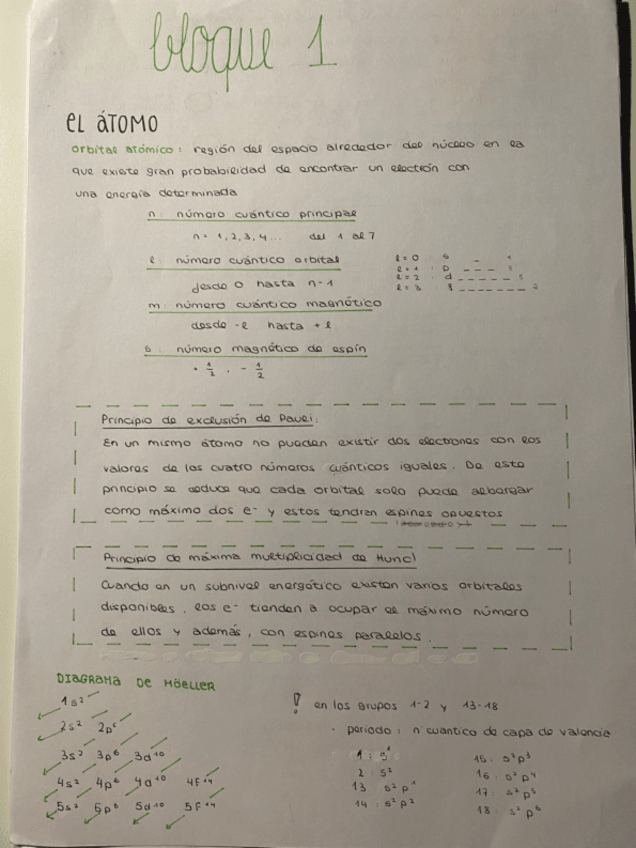 bloque 1
EL ÁTOMO
orbital atómico: región del espacio alrededor del núcleo en la
que existe gran probabilidad de encontrar un electrón con
una energía determinada
n: número cuántico principal
n = 1, 2, 3, 4 ... del 1 al 7
l: número cuántico orbital
desde 0 hasta n-1
l = 0 : s _ 1
l = 1 : p _ _ _ 3
l = 2 : d _ _ _ _ _ 5
l = 3 : f _ _ _ _ _ _ _
m: número cuántico magnético
desde -l hasta +l
s: número magnético de espín
+ 1/2 , - 1/2
Principio de exclusión de Pauli:
En un mismo átomo no pueden existir dos electrones con los
valores de los cuatro números cuánticos iguales. De este
principio se deduce que cada orbital solo puede albergar
como máximo dos e⁻ y estos tendran espines opuestos
Principio de máxima multiplicidad de Hund
Cuando en un subnivel energético existen varios orbitales
disponibles, los e⁻ tienden a ocupar el máximo número
de ellos y además, con espines paralelos.
DIAGRAMA DE MÖELLER
1s²
2s² 2p⁶
3s² 3p⁶ 3d¹⁰
4s² 4p⁶ 4d¹⁰ 4f¹⁴
5s² 5p⁶ 5d¹⁰ 5f¹⁴
! en los grupos 1-2 y 13-18
· periodo: n cuantico de capa de valencia
1 : s¹
2 : s²
13 : s² p¹
14 : s² p²
15 : s² p³
16 : s² p⁴
17 : s² p⁵
18 : s² p⁶